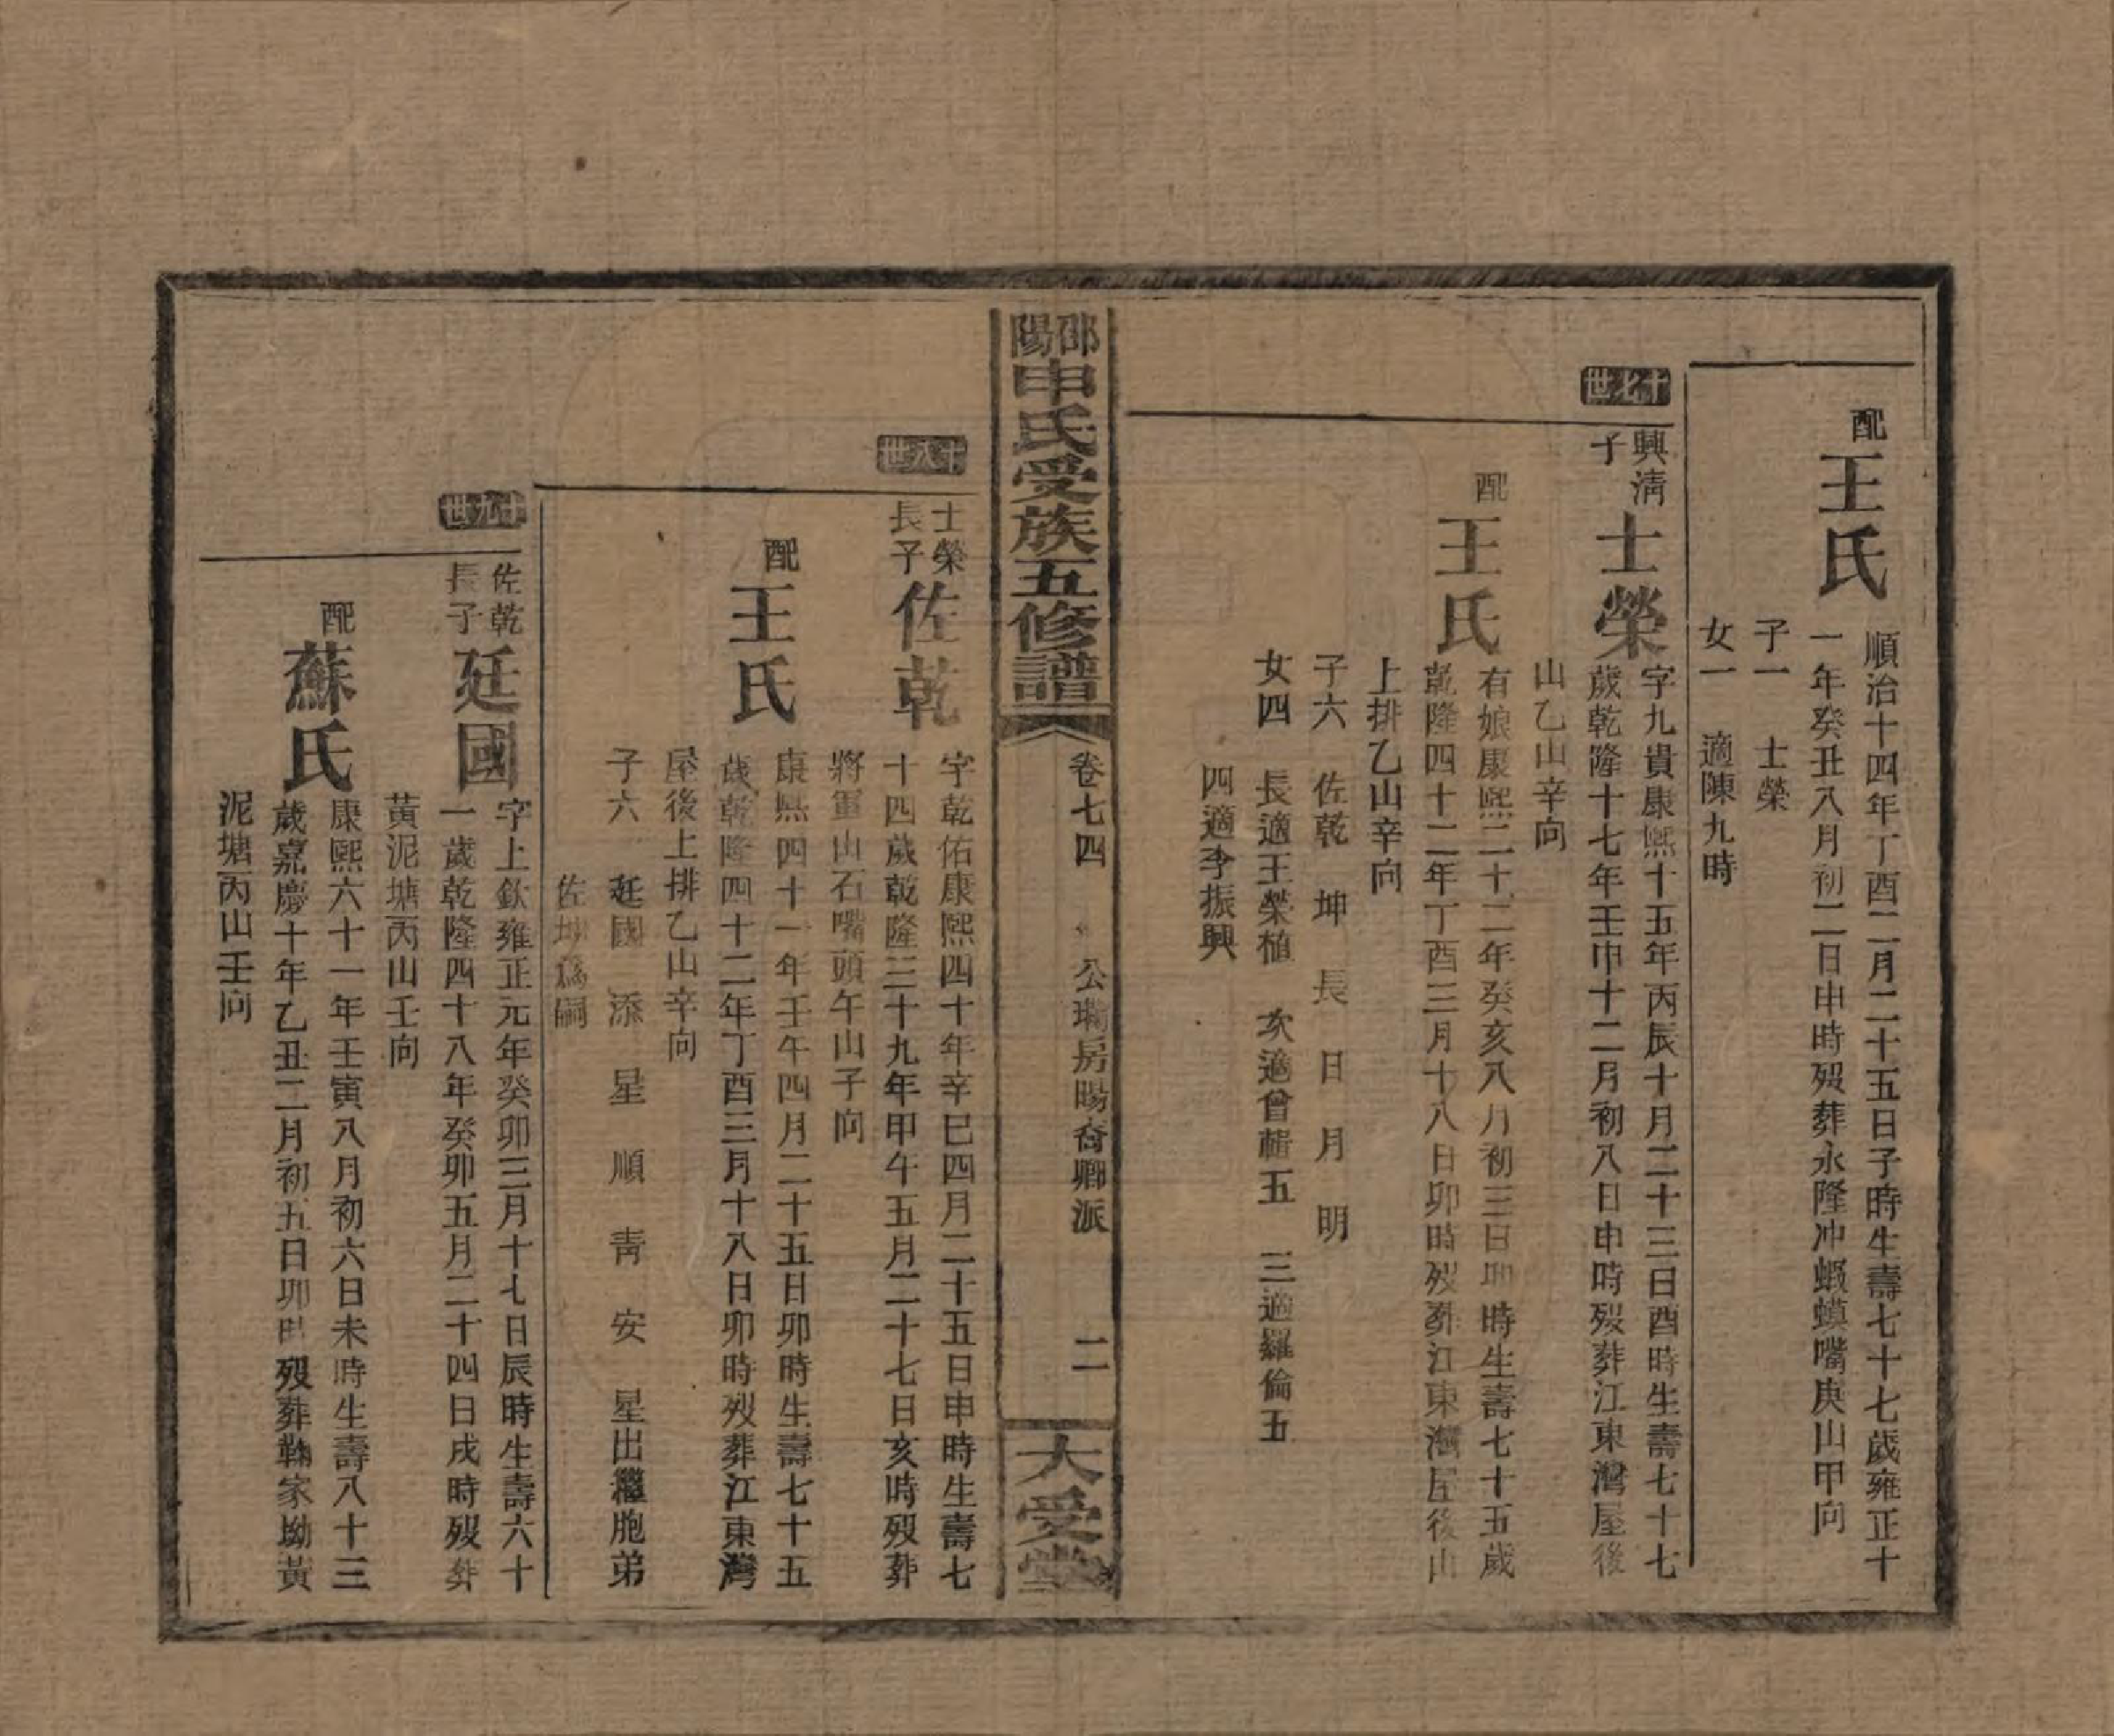 配王氏
順治十四年丁酉二月二十五日子時生壽七十七歲雍正十
一年癸丑八月初二日申時歿葬永隆冲蝦蟆嘴庚山甲向
子一 士榮
女一 適陳九時
十七世
興淸子 士榮
字九貴康熙十五年丙辰十月二十三日酉時生壽七十七
歲乾隆十七年壬申十二月初八日申時歿葬江東灣屋後
山乙山辛向
配王氏
有娘康熙二十二年癸亥八月初三日卯時生壽七十五歲
乾隆四十二年丁酉三月十八日卯時歿葬江東灣屋後山
上排乙山辛向
子六 佐乾 坤 長 日 月 明
女四 長適王榮植 次適曾輯五 三適羅倫五
四適李振興
邵陽申氏受族五修譜
卷七四
公房暘裔卿派
二
大受堂
十八世
士榮長子 佐乾
字乾佑康熙四十年辛巳四月二十五日申時生壽七
十四歲乾隆三十九年甲午五月二十七日亥時歿葬
將軍山石嘴頭午山子向
配王氏
康熙四十一年壬午四月二十五日卯時生壽七十五
歲乾隆四十二年丁酉三月十八日卯時歿葬江東灣
屋後上排乙山辛向
子六 廷國 添 星 順 靑 安 星出繼胞弟
佐坤爲嗣
十九世
佐乾長子 廷國
字上欽雍正元年癸卯三月十七日辰時生壽六十
一歲乾隆四十八年癸卯五月二十四日戌時歿葬
黃泥塘丙山壬向
配蘇氏
康熙六十一年壬寅八月初六日未時生壽八十三
歲嘉慶十年乙丑二月初五日卯時歿葬家坳黃
泥塘丙山壬向